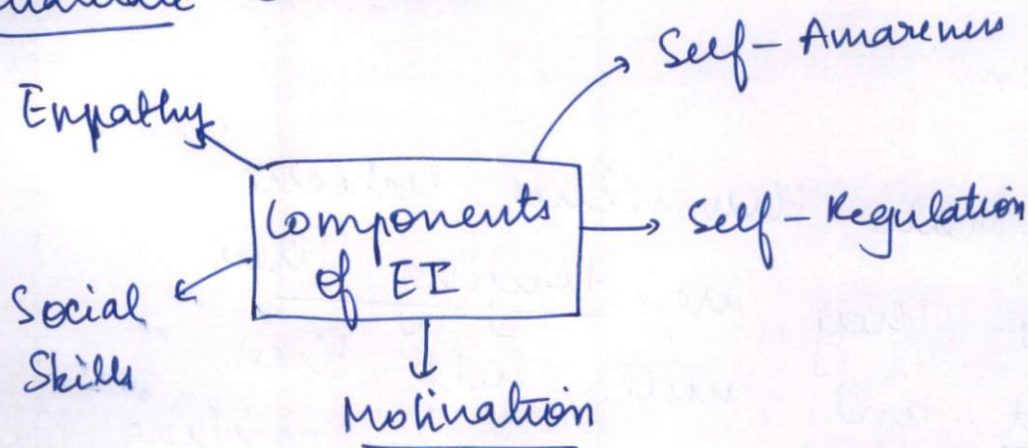 Self-Awareness
Empathy
Components
of EI
Self-Regulation
Social
Skills
Motivation